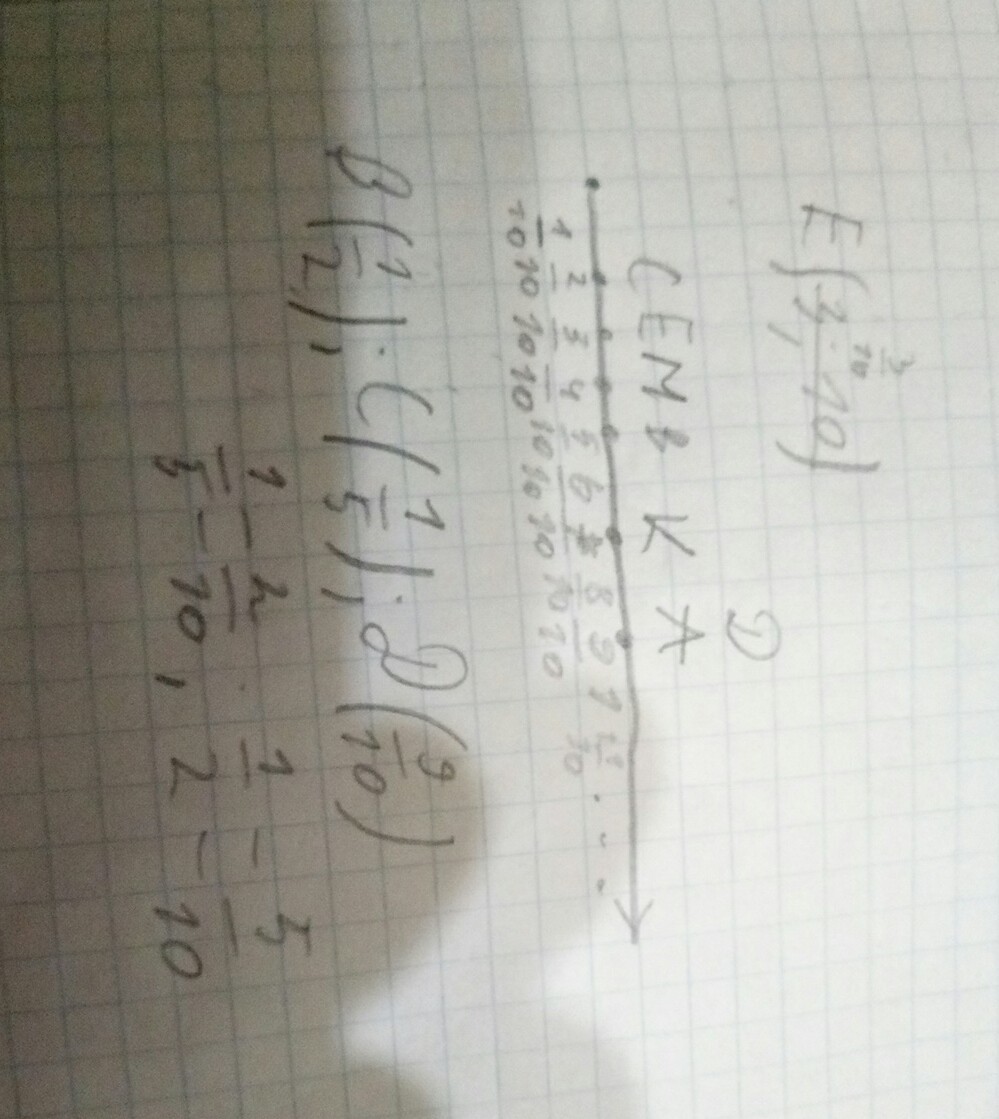 E(3/10)
D
C E M B K A
1/10 2/10 3/10 4/10 5/10 6/10 7/10 8/10 9/10 1 ...
B(1/2), C(1/5); D(9/10)
1/5 = 2/10, 1/2 = 5/10